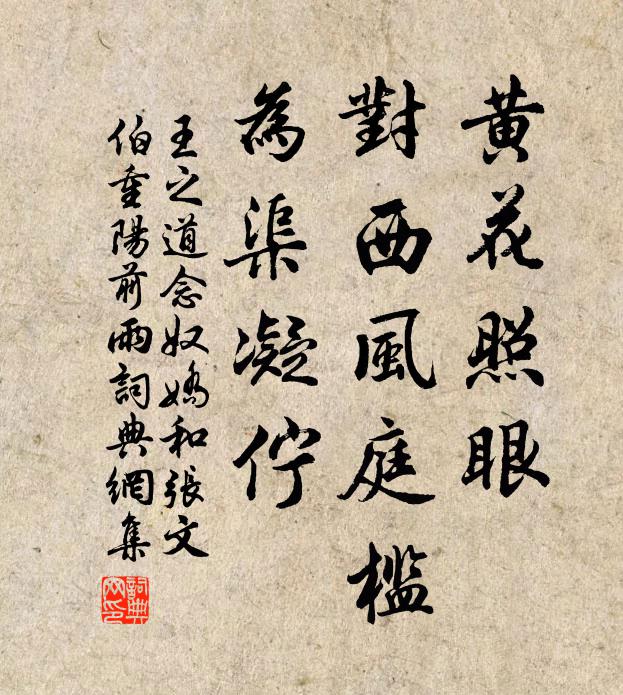 黄花照眼
對西風庭檻
為渠凝佇
王之道念奴嬌和張文
伯重陽前雨詞典網集
詞典網印